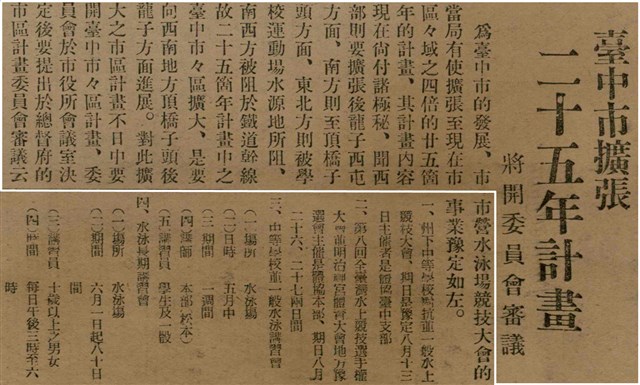 臺中市擴張
二十五年計畫
將開委員會審議
為臺中市的發展、市
當局有使擴張至現在市
區々域之四倍的廿五箇
年的計畫、其計畫內容
現在尙付諸極秘、聞西
部則要擴張後龍子西屯
方面、南方則至頂橋子
頭方面、東北方則被學
校運動場水源地所阻、
南西方被阻於鐵道幹線
故二十五箇年計畫中之
臺中市々區擴大、是要
向西南地方頂橋子頭後
龍子方面進展。對此擴
大之市區計畫不日中要
開臺中市々區計畫、委
員會於市役所會議室決
定後要提出於總督府的
市區計畫委員會審議云
市營水泳場競技大會的
事業豫定如左。
一、州下中等學校對抗並一般水上
競技大會、期日是豫定八月十三
日主催者是體協臺中支部
二、第八回全臺灣水上競技選手權
大會並明治神宮體育大會地方豫
選會主催是體協本部、期日八月
二十六、二十七兩日間
三、中等學校並一般水泳講習會
(一)場所 水泳場
(二)日時 五月中
(三)期間 一週間
(四)講師 本部(松本)
(五)講習員 學生及一般
四、水泳長期講習會
(一)場所 水泳場
(二)期間 六月一日起八十日
間
(三)講習員 十歲以上之男女
(四)時間 每日午後三時至六
時